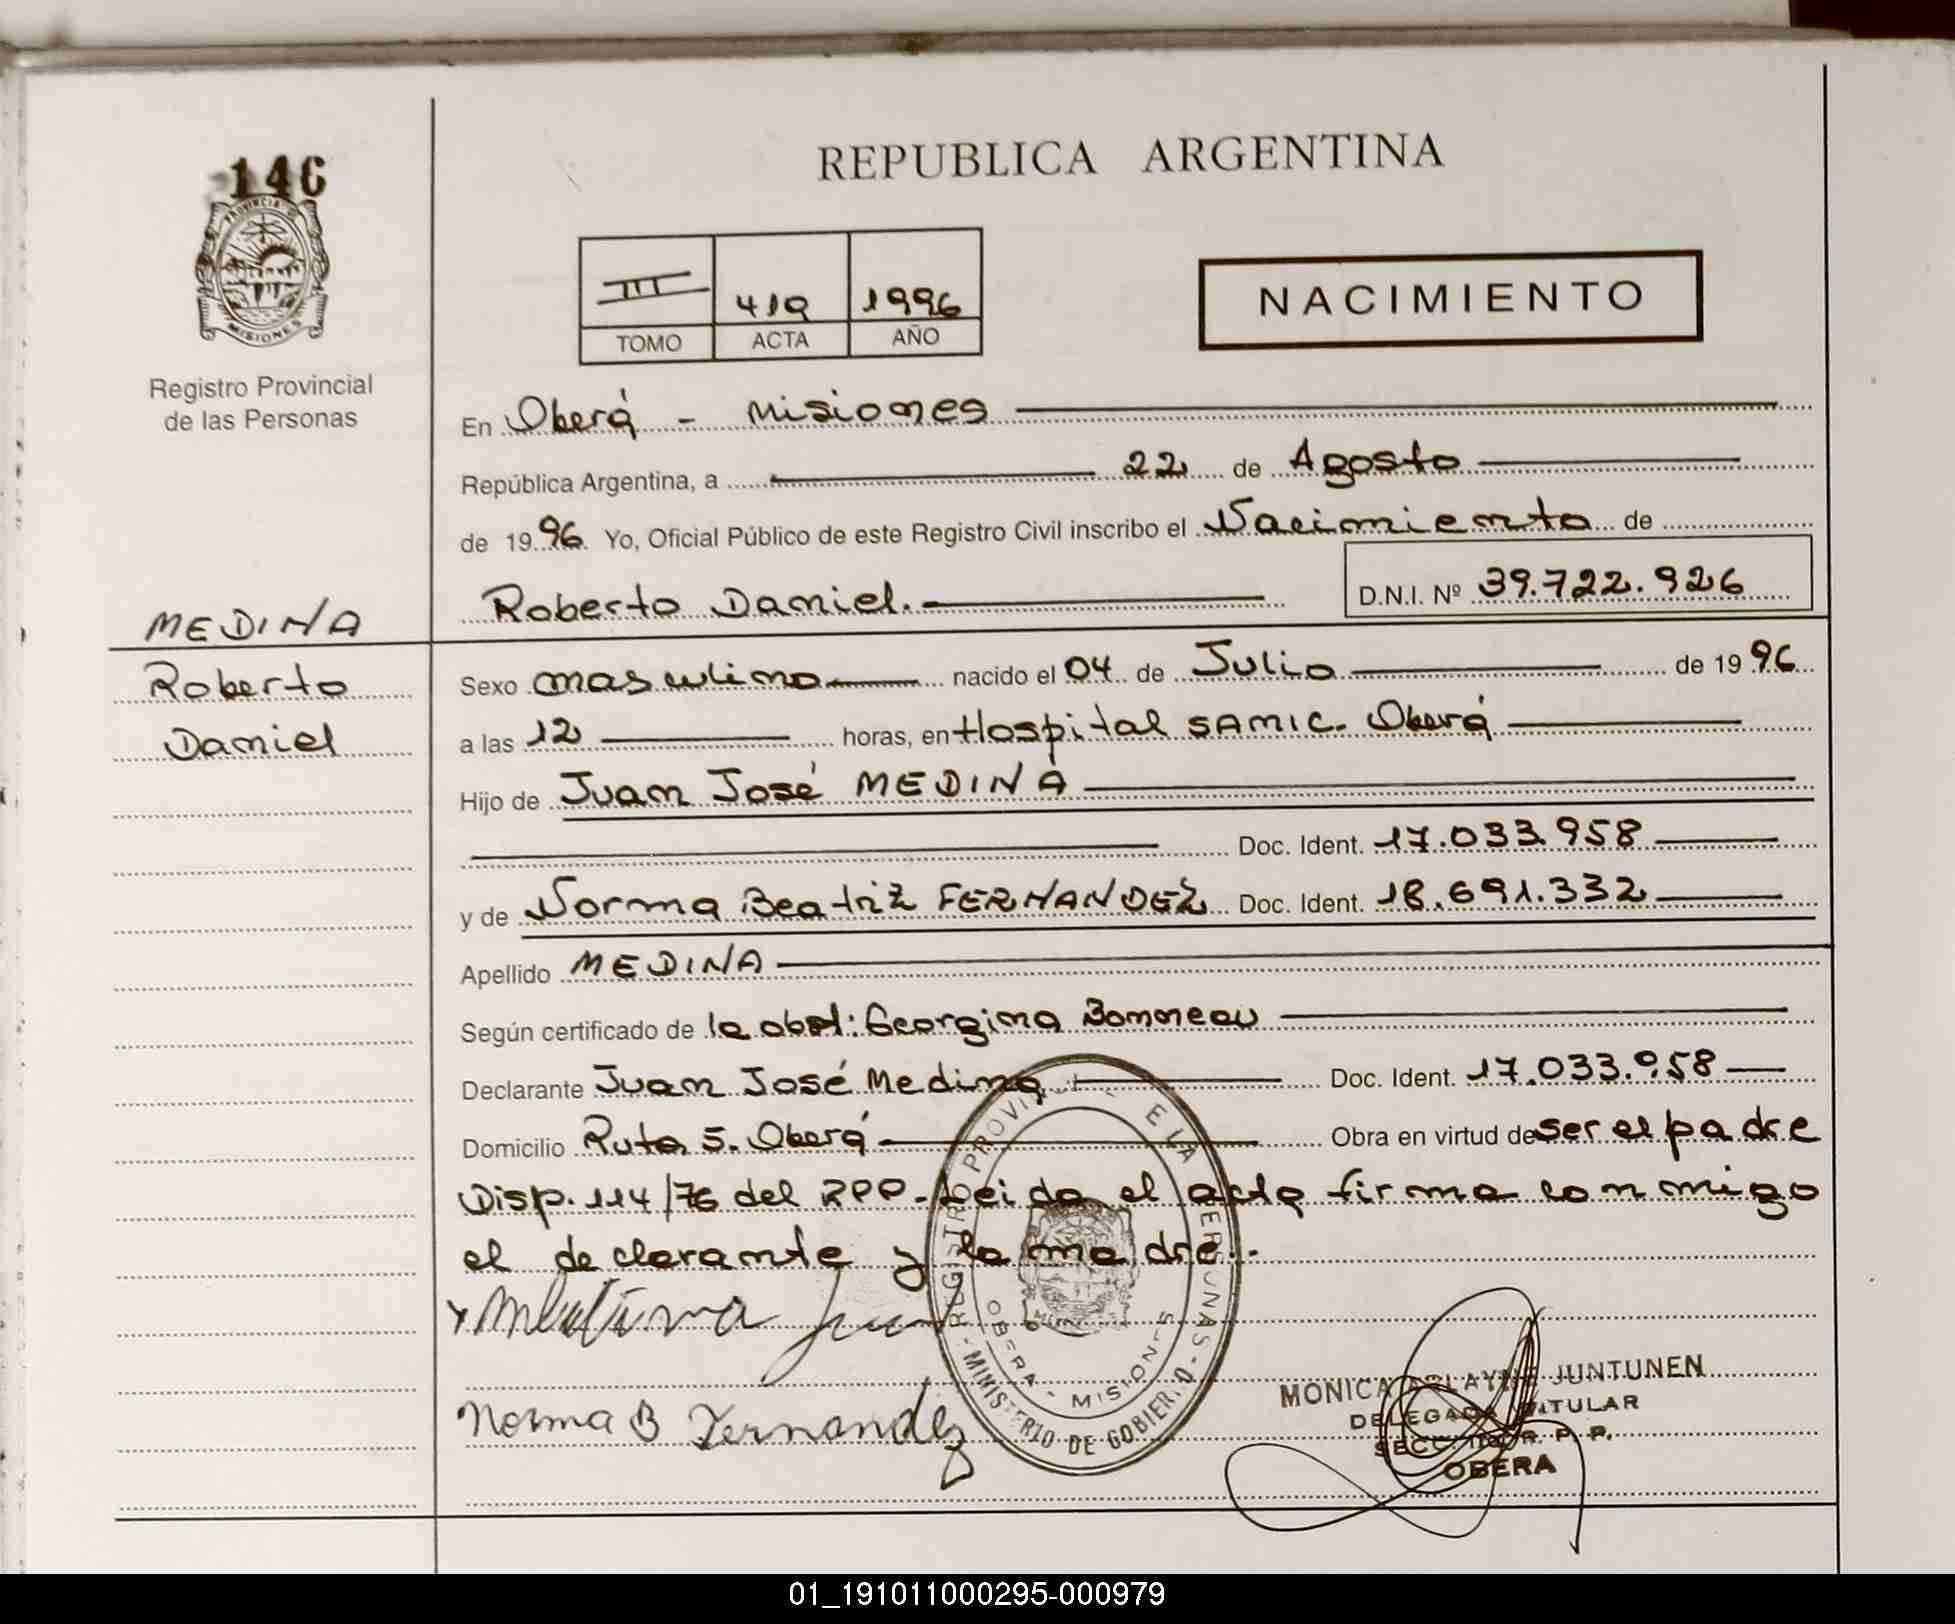 146
PROVINCIA DE
MISIONES
Registro Provincial
de las Personas
REPUBLICA ARGENTINA
III 419 1996
TOMO ACTA AÑO
NACIMIENTO
En Oberá - Misiones
República Argentina, a 22 de Agosto
de 1996 Yo, Oficial Público de este Registro Civil inscribo el Nacimiento de
Roberto Daniel. D.N.I. Nº 39.722.926
MEDINA
Roberto
Daniel
Sexo masculino nacido el 04 de Julio de 1996
a las 12 horas, en Hospital SAMIC. Oberá
Hijo de Juan José MEDINA
Doc. Ident. 17.033.958
y de Norma Beatriz FERNANDEZ Doc. Ident. 18.691.332
Apellido MEDINA
Según certificado de la obst: Georgina Bonneau
Declarante Juan José Medina Doc. Ident. 17.033.958
Domicilio Ruta 5. Oberá Obra en virtud de ser el padre
Disp. 114/76 del RPP. Leida el acta firma conmigo
el declarante y la madre.
REGISTRO PROVINCIAL DE LAS PERSONAS
MINISTERIO DE GOBIERNO
OBERA - MISIONES
Norma B Fernandez
MONICA JUNTUNEN
DELEGADA TITULAR
SECC. R. P. P.
OBERA
01_191011000295-000979